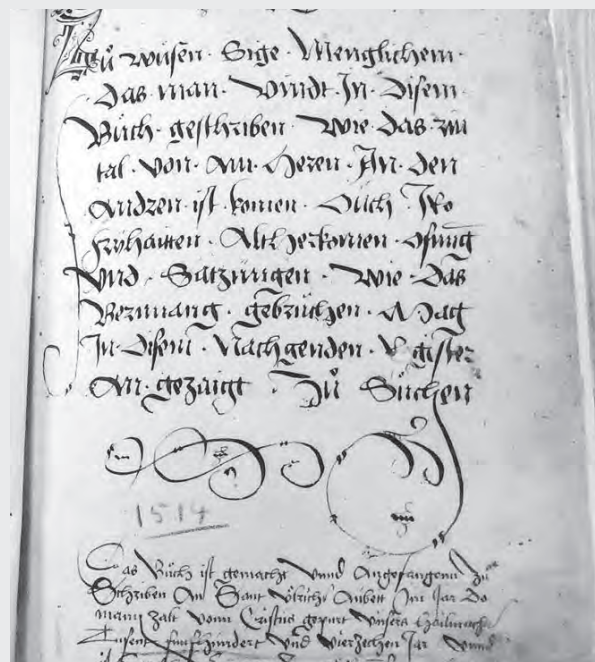 Zu wüsen Sige Menglichem
Das man vindt In Disem
Buch geschriben wie das
tal von ain Heren An den
Andren ist komen Ouch Iro
fryhaitten Altherkomen Ofnung
vnd Satzungen wie Das
gebruchen Mag
In Disem Nachgenden
An gezaigt Zu Suchen
1514
Das Buch ist gemacht vnnd Angefangenn zu
Schriben An Sant Vlrichs Aubett Im Jar Do
mann zalt vonn Cristus gepurt vnsers
Tusent funfhundert vnd vierzechen Jar vnnd